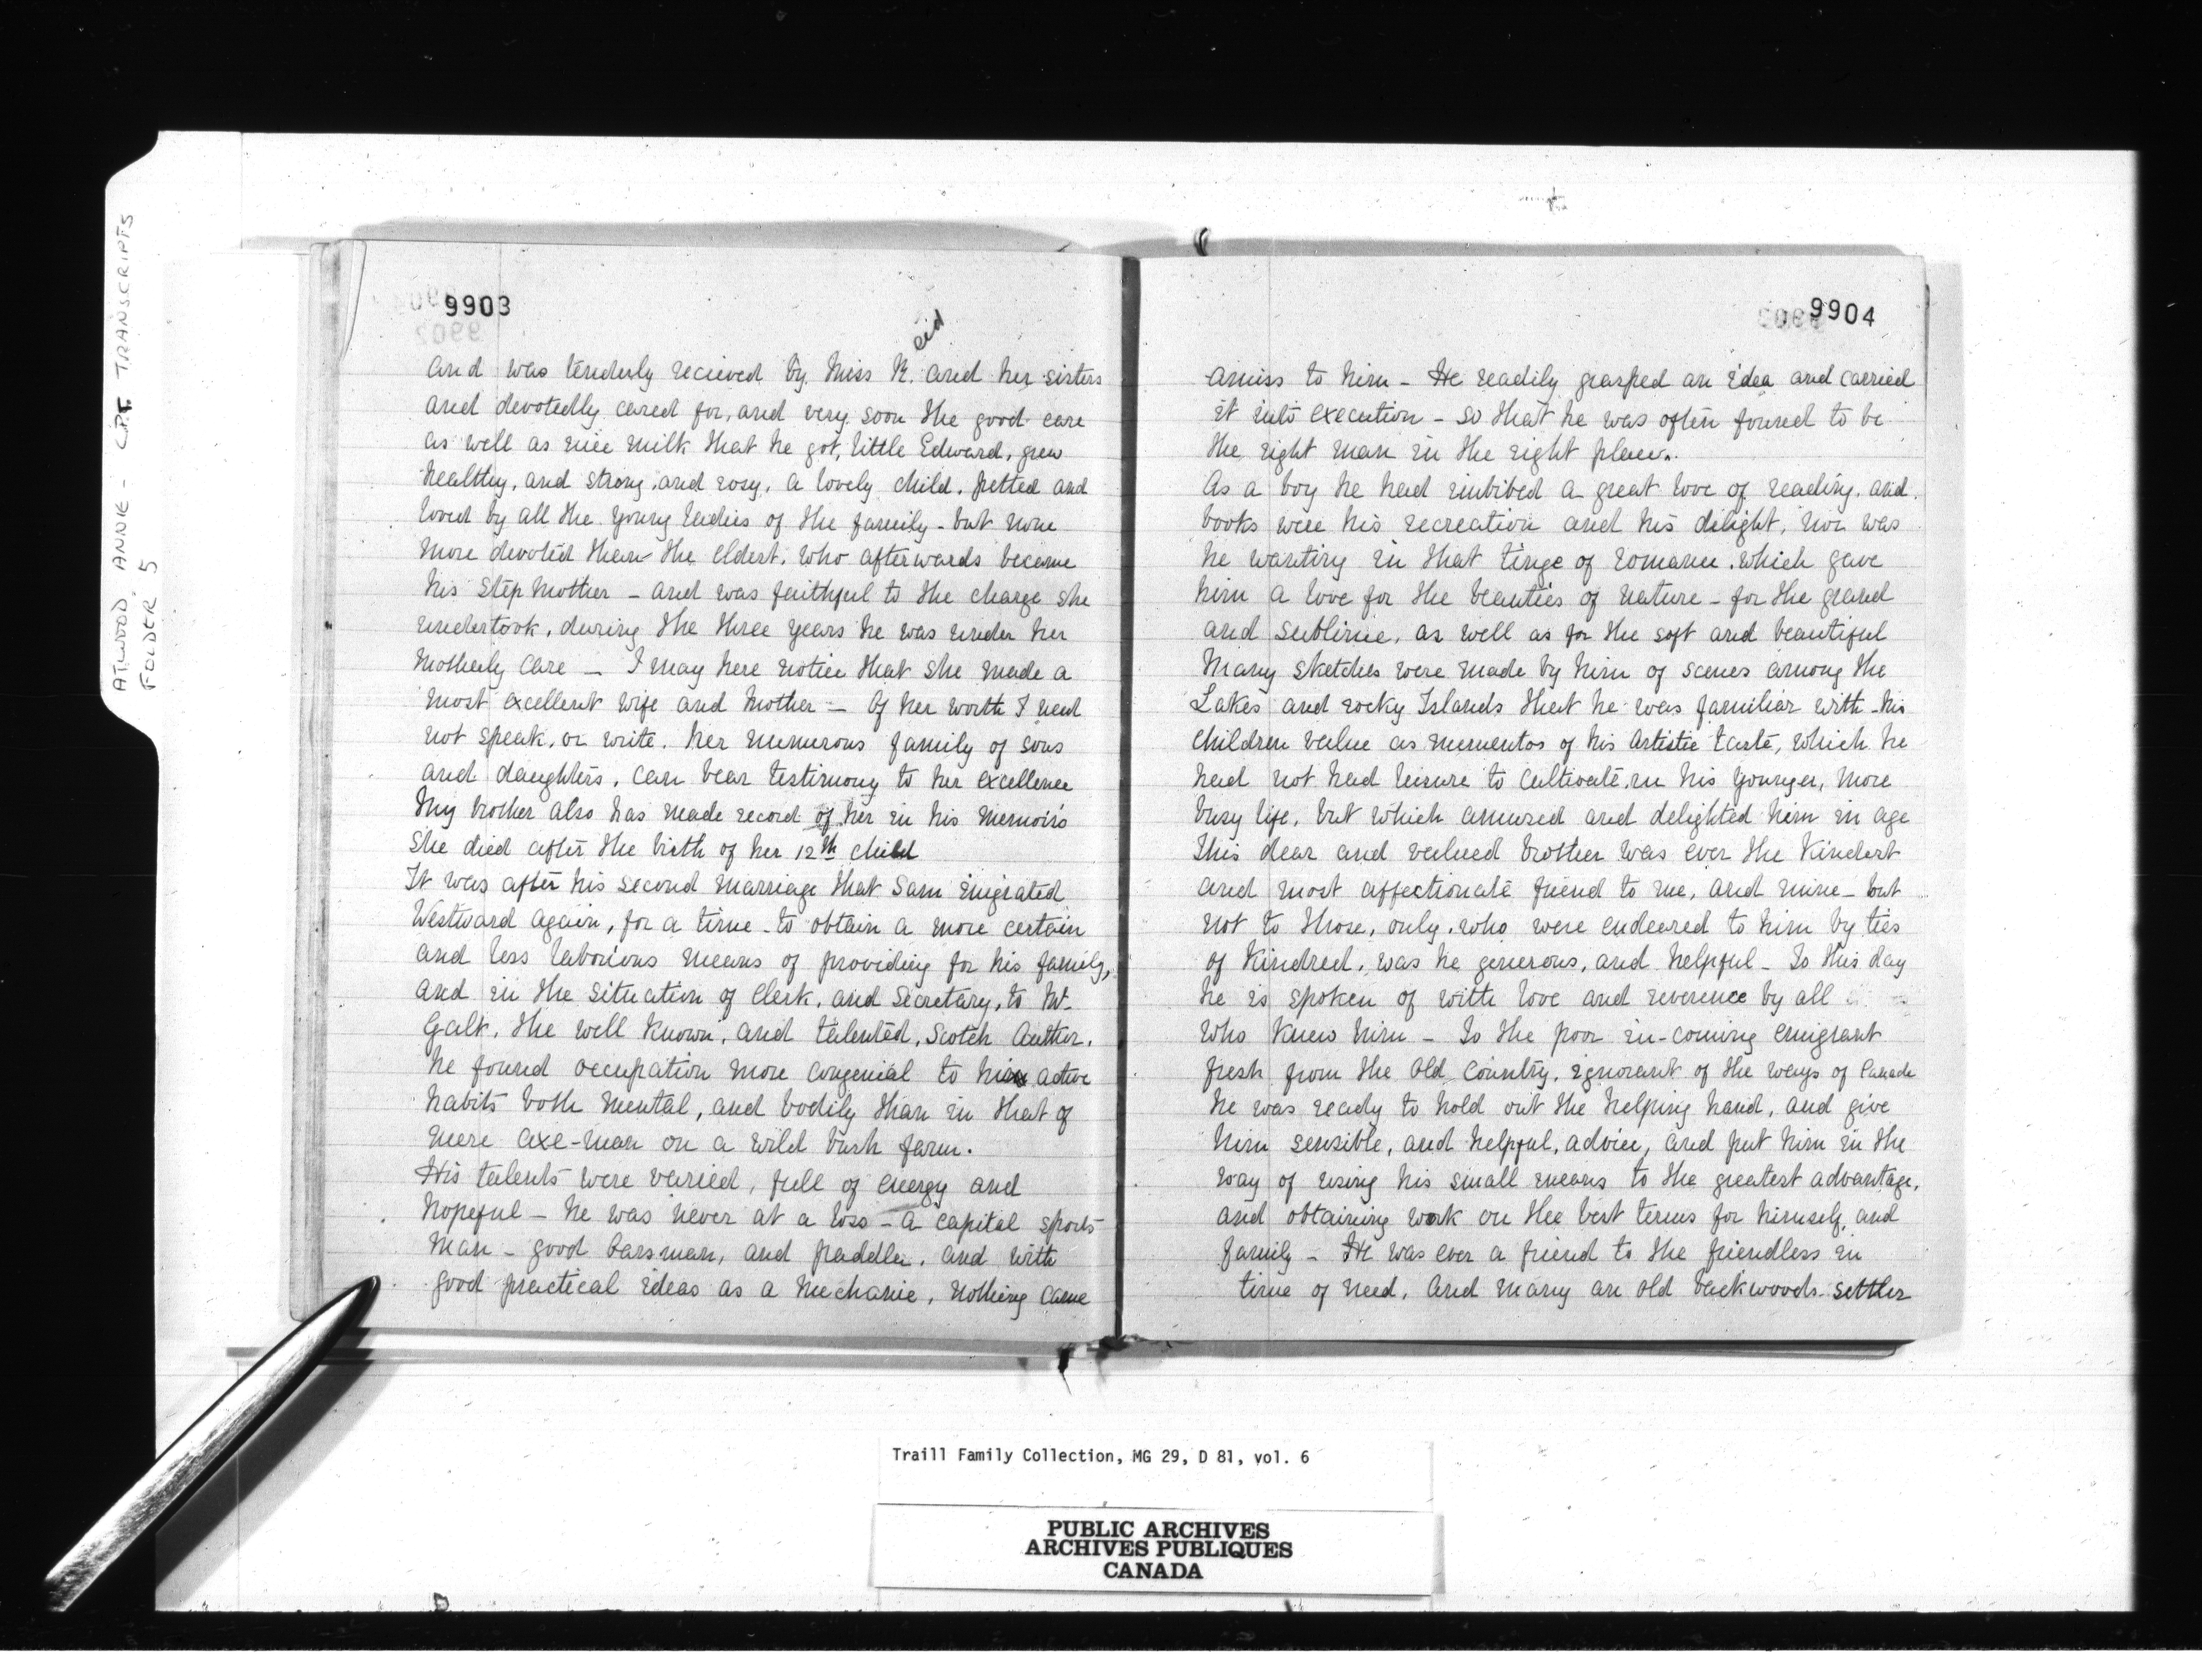 ATWOOD, ANNIE - C.P.T. TRANSCRIPTS
FOLDER 5
9903
eid
and was tenderly recieved by Miss R. and her sisters
and devotedly cared for, and very soon the good care
as well as nice milk that he got, little Edward, grew
healthy, and strong, and rosy, a lovely child, petted and
loved by all the young ladies of the family - but none
more devoted than the eldest, who afterwards became
his Step Mother - and was faithful to the charge she
undertook, during the three years he was under her
Motherly care - I may here notice that she made a
most excellent wife and Mother - Of her worth I need
not speak, or write, her numerous family of sons
and daughters, can bear testimony to her excellence
My brother also has made record of her in his memoirs
She died after the birth of her 12th child
It was after his second marriage that Sam emigrated
Westward again, for a time - to obtain a more certain
and less laborious means of providing for his family,
and in the situation of Clerk, and Secretary, to Mr.
Galt, the well known, and talented, Scotch Author,
he found occupation more congenial to his active
habits both mental, and bodily than in that of
mere axe-man on a wild bush farm.
His talents were varied, full of energy and
hopeful - he was never at a loss - a capital sports
man - good oarsman, and paddler, and with
good practical ideas as a Mechanic, nothing came
9904
amiss to him - He readily grasped an idea and carried
it into execution - so that he was often found to be
the right man in the right place.
As a boy he had imbibed a great love of reading, and
books were his recreation and his delight, nor was
he wanting in that tinge of romance, which gave
him a love for the beauties of nature - for the grand
and sublime, as well as for the soft and beautiful
Many sketches were made by him of scenes among the
Lakes and rocky Islands that he was familiar with - his
children value as mementos of his artistic taste, which he
had not had leisure to cultivate, in his younger, more
busy life, but which amused and delighted him in age
This dear and valued brother was ever the kindest
and most affectionate friend to me, and mine - but
not to those, only, who were endeared to him by ties
of kindred, was he generous, and helpful - To this day
he is spoken of with love and reverence by all
who knew him - To the poor in-coming emigrant
fresh from the Old Country, ignorant of the ways of Canada
he was ready to hold out the helping hand, and give
him sensible, and helpful, advice, and put him in the
way of using his small means to the greatest advantage,
and obtaining work on the best terms for himself, and
family - He was ever a friend to the friendless in
time of need, and many an old backwoods settler
Traill Family Collection, MG 29, D 81, vol. 6
PUBLIC ARCHIVES
ARCHIVES PUBLIQUES
CANADA